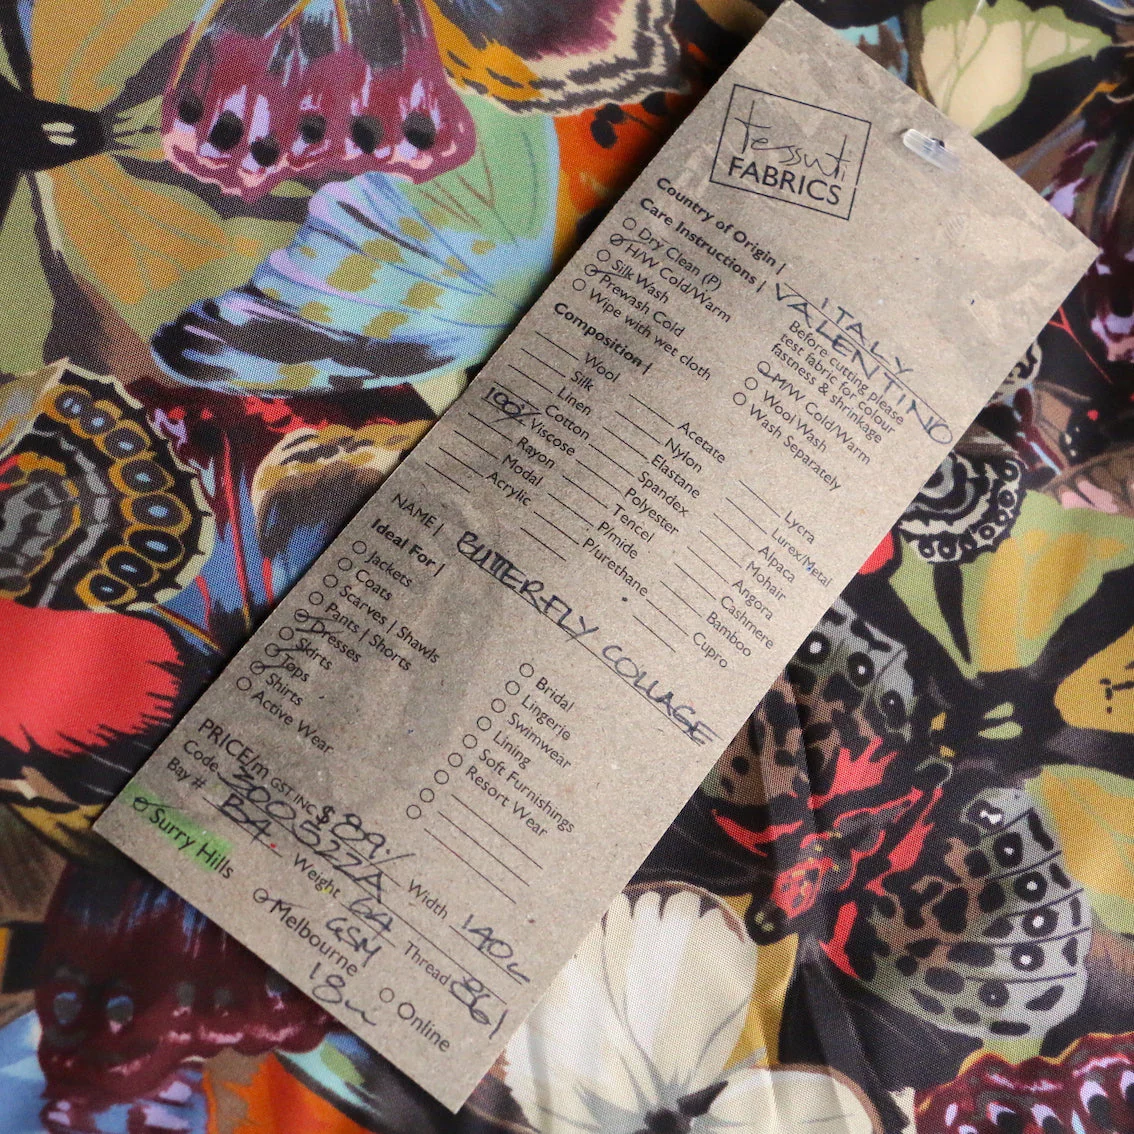 tessuti
FABRICS
Country of Origin | ITALY
VALENTINO
Care Instructions |
Before cutting please
test fabric for colour
fastness & shrinkage
Dry Clean (P)
H/W Cold/Warm
Silk Wash
Prewash Cold
Wipe with wet cloth
M/W Cold/Warm
Wool Wash
Wash Separately
Composition |
Wool
Silk
Linen
Cotton
100% Viscose
Rayon
Modal
Acrylic
Acetate
Nylon
Elastane
Spandex
Polyester
Tencel
P/mide
P/urethane
Lycra
Lurex/Metal
Alpaca
Mohair
Angora
Cashmere
Bamboo
Cupro
NAME | BUTTERFLY COLLAGE
Ideal For |
Jackets
Coats
Scarves | Shawls
Pants | Shorts
Dresses
Skirts
Tops
Shirts
Active Wear
Bridal
Lingerie
Swimwear
Lining
Soft Furnishings
Resort Wear
PRICE/m GST INC $89/-
Code 3005522A Width 140c
Bay # B4 Weight 64 GSM Thread 861
Surry Hills
Melbourne
18m
Online